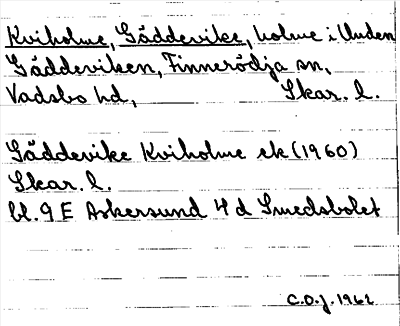 Kviholme, Gäddevike, holme i Unden
Gäddeviken, Finnerödja sn,
Vadsbo hd, Skar. l.
Gäddevike Kviholme ek (1960)
Skar. l.
bl. 9 E Askersund 4 d Smedsbolet
C.O.J. 1962